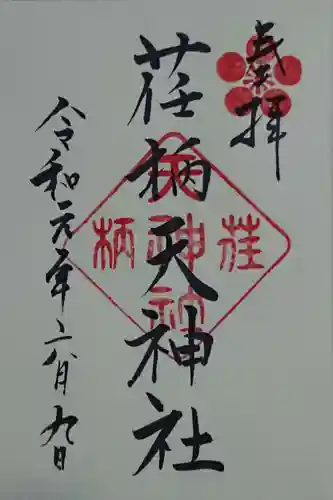 奉拝
荏柄天神社
令和元年六月九日
荏柄天神社